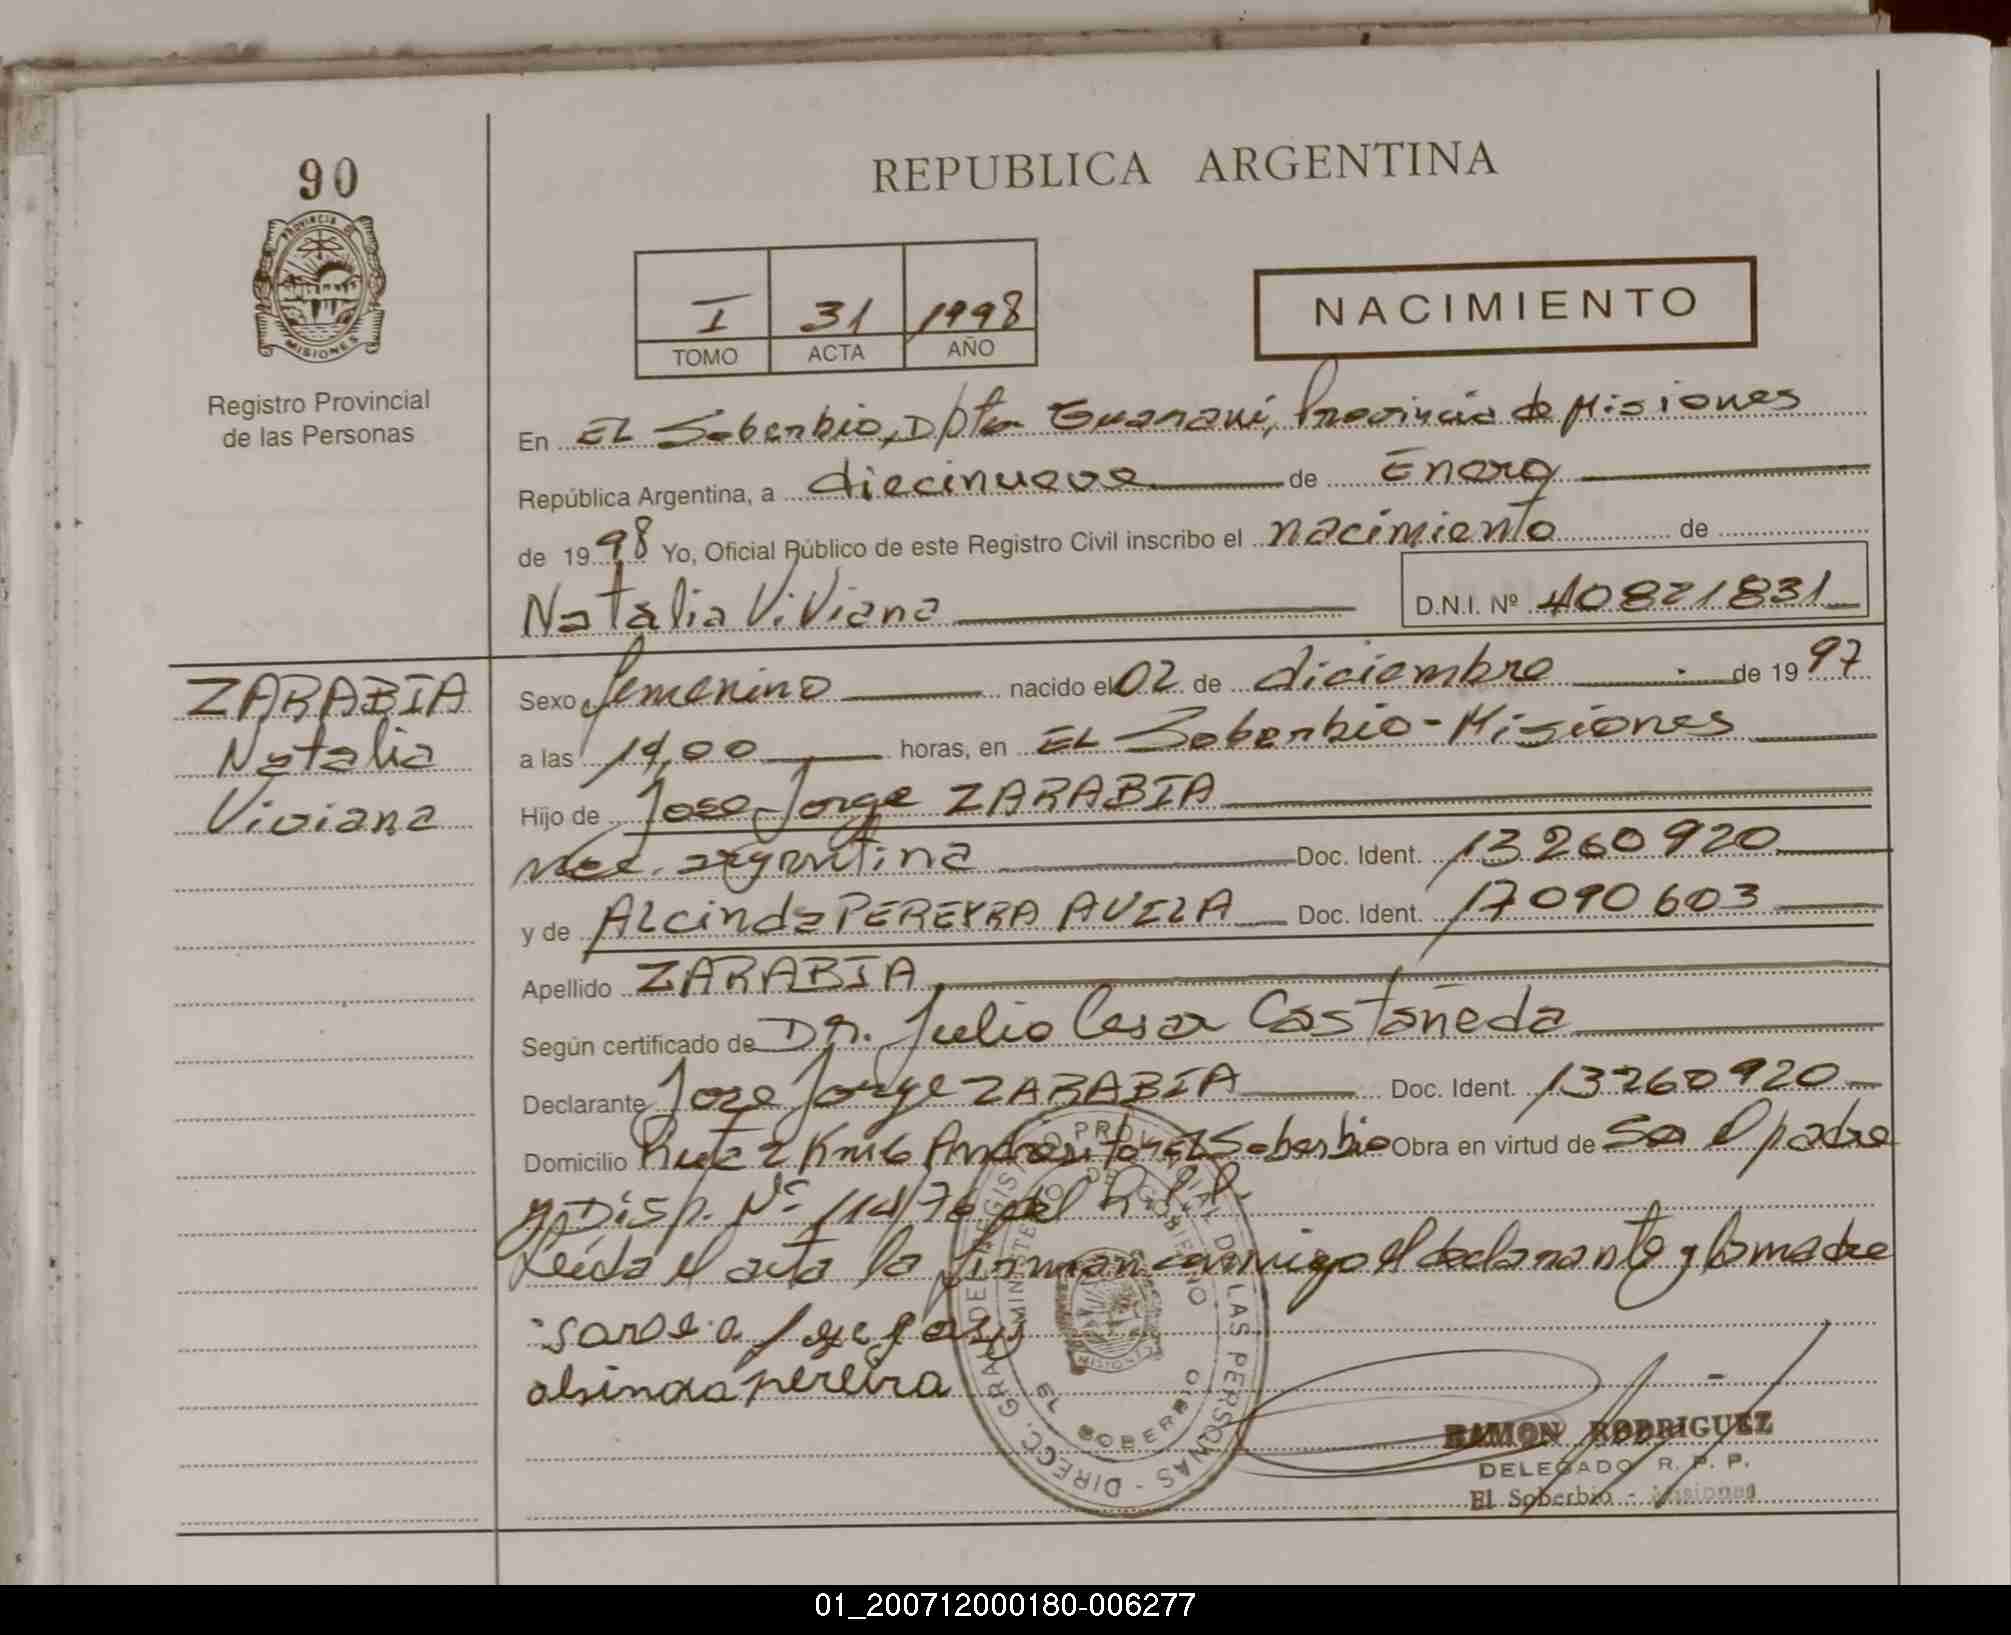 90
PROVINCIA DE
MISIONES
Registro Provincial
de las Personas
REPUBLICA ARGENTINA
I 31 1998
TOMO ACTA AÑO
NACIMIENTO
En EL Soberbio, Dpto Guaraní, Provincia de Misiones
República Argentina, a diecinueve de Enero
de 1998 Yo, Oficial Público de este Registro Civil inscribo el nacimiento de
Natalia Viviana D.N.I. Nº 40821831
ZARABIA
Natalia
Viviana
Sexo femenino nacido el 02 de diciembre de 1997
a las 14,00 horas, en EL Soberbio - Misiones
Hijo de Jose Jorge ZARABIA
Nac. argentina Doc. Ident. 13260920
y de ALcinda PEREYRA AVILA Doc. Ident. 17090603
Apellido ZARABIA
Según certificado de DR. Julio Cesar Castañeda
Declarante Jose Jorge ZARABIA Doc. Ident. 13260920
Domicilio Ruta 2 Km 6 El Soberbio Obra en virtud de Ser el padre
y Disp. Nº 114/76 del R.P.P.
Leída el acta la firman conmigo el declarante y la madre
pereira
DIRECC. GRAL. DEL REGISTRO PROVINCIAL DE LAS PERSONAS
MINISTERIO DE GOBIERNO
MISIONES
EL SOBERBIO
RAMON RODRIGUEZ
DELEGADO R. P. P.
El Soberbio - Misiones
01_200712000180-006277